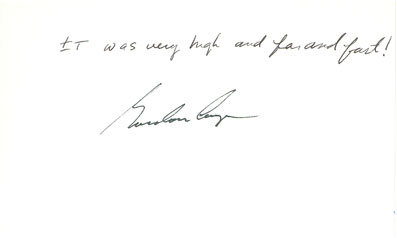 IT was very high and far and fast!
Gordon Cooper